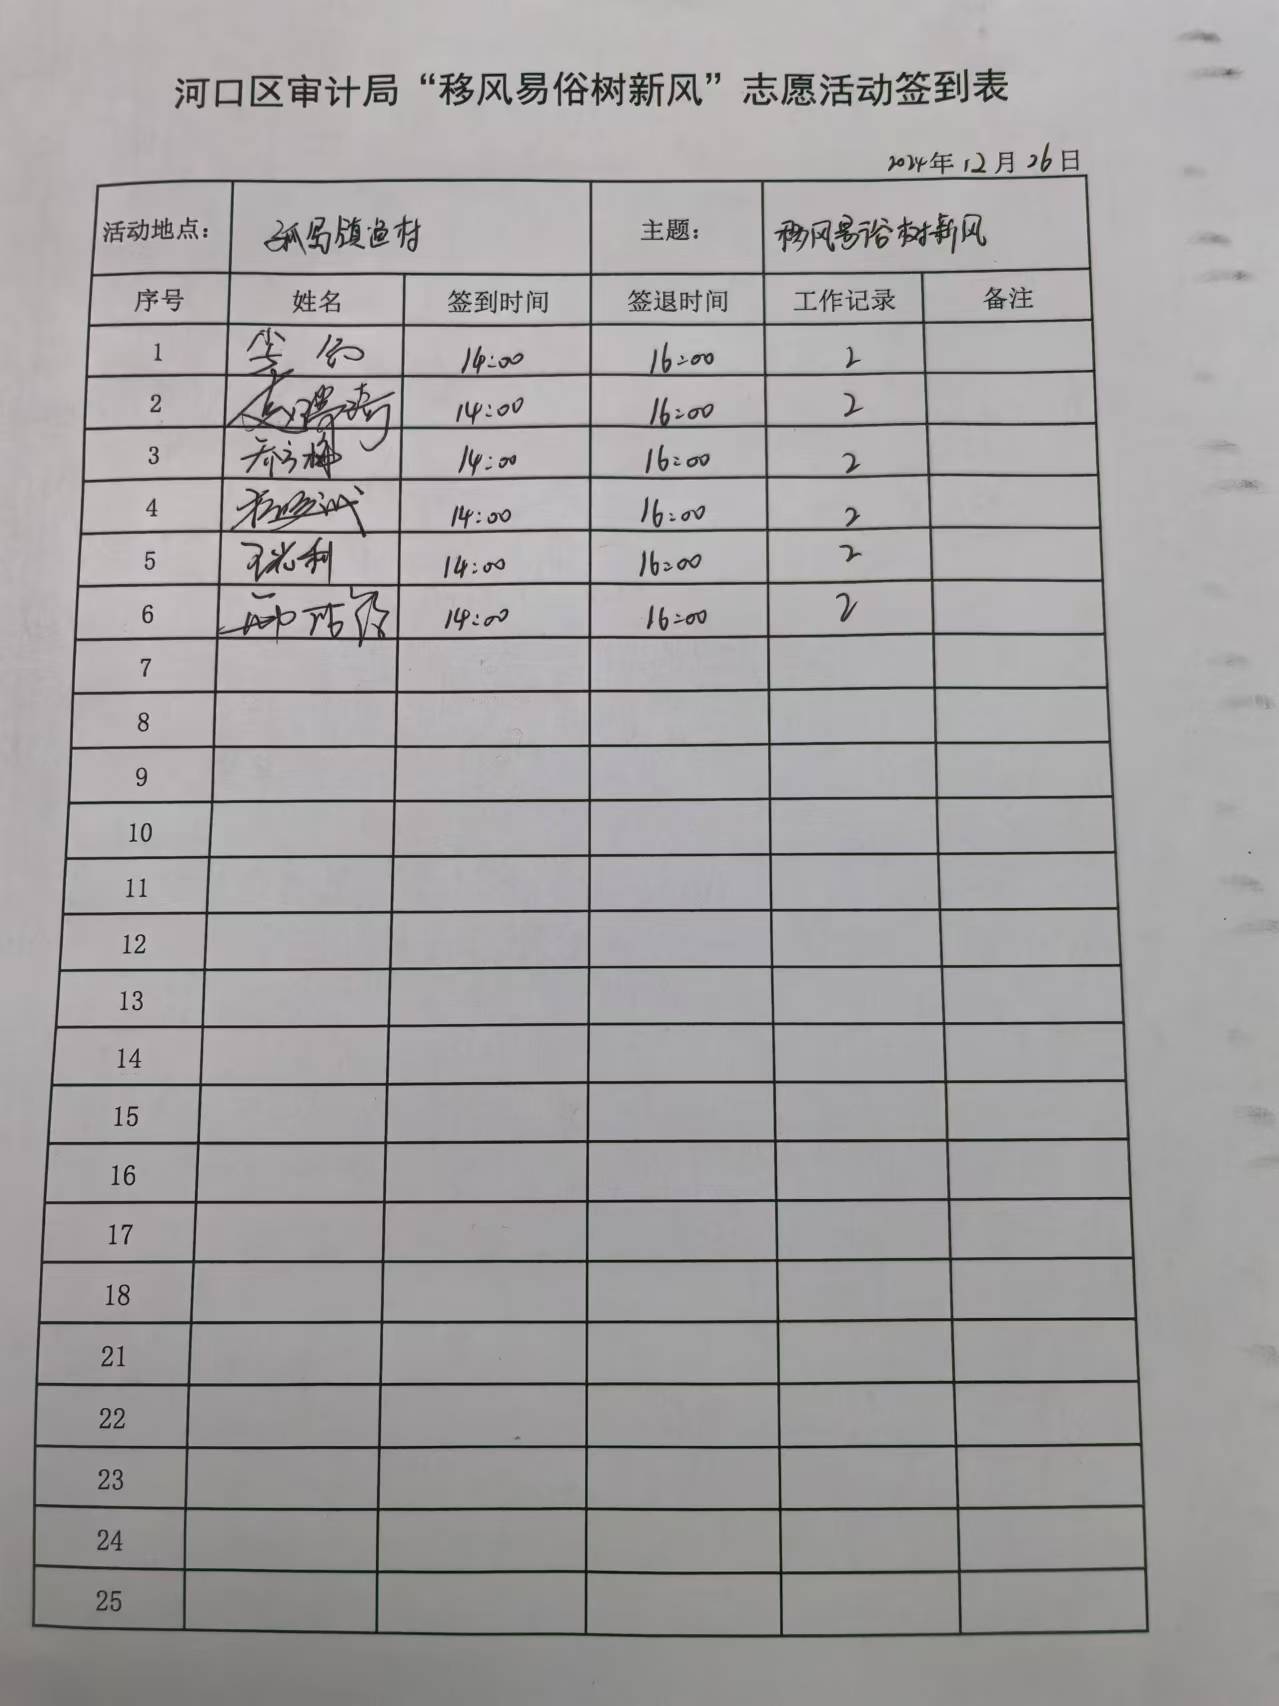 河口区审计局“移风易俗树新风”志愿活动签到表
2024年12月26日
活动地点： 孤岛镇渔村 主题： 移风易俗树新风
序号 姓名 签到时间 签退时间 工作记录 备注
1 14:00 16:00 2
2 14:00 16:00 2
3 14:00 16:00 2
4 14:00 16:00 2
5 14:00 16:00 2
6 14:00 16:00 2
7
8
9
10
11
12
13
14
15
16
17
18
21
22
23
24
25